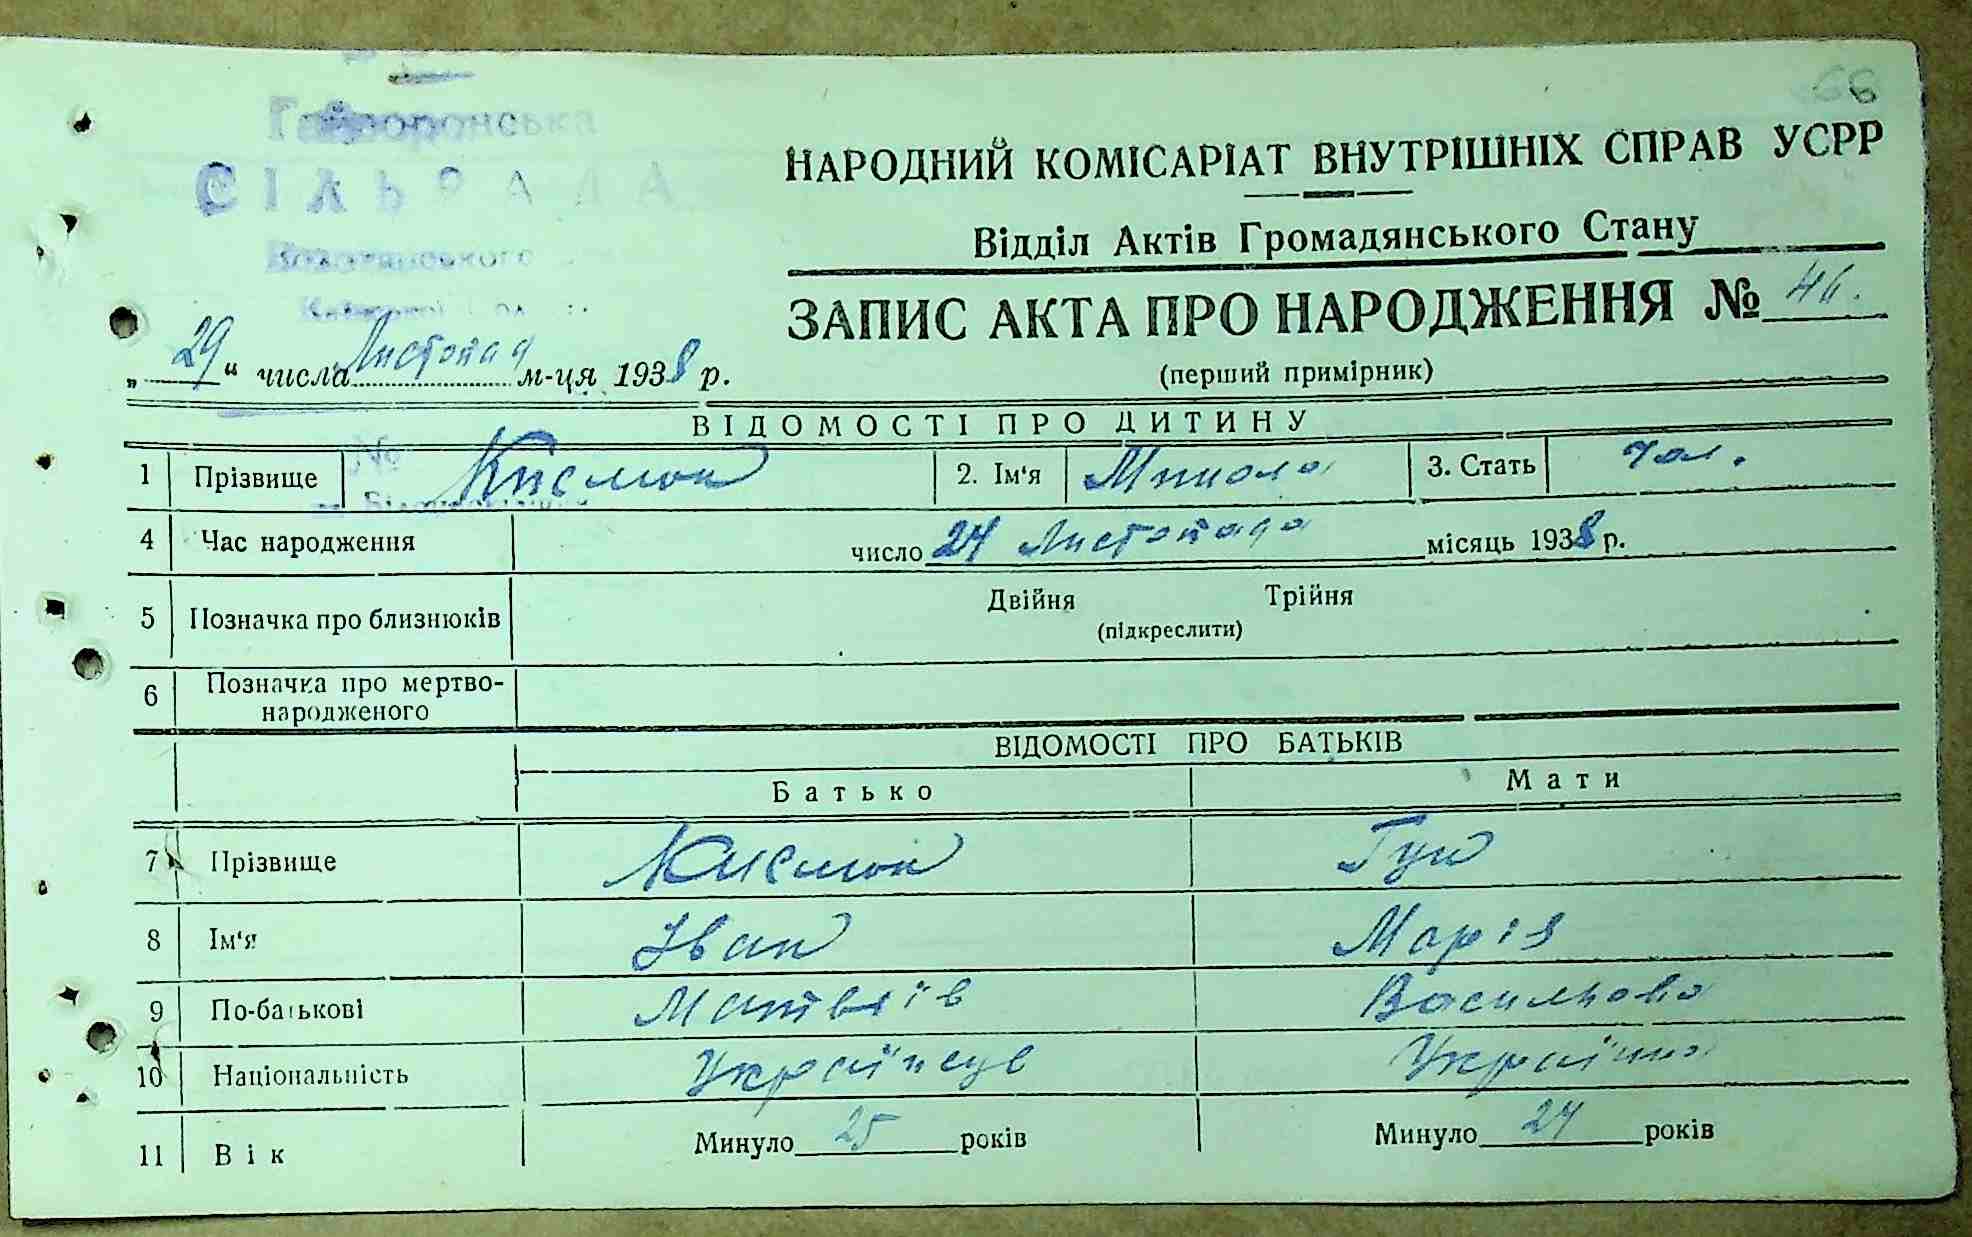 66
Гайворонська
СІЛЬРАДА
НАРОДНИЙ КОМІСАРІАТ ВНУТРІШНІХ СПРАВ УСРР
Відділ Актів Громадянського Стану
ЗАПИС АКТА ПРО НАРОДЖЕННЯ № 46.
(перший примірник)
„29“ числа Листопад м-ця 1938 р.
ВІДОМОСТІ ПРО ДИТИНУ
1 Прізвище Кисмон 2. Ім'я Микола 3. Стать чол.
4 Час народження число 24 Листопада місяць 1938 р.
5 Позначка про близнюків Двійня Трійня
(підкреслити)
6 Позначка про мертво-
народженого
ВІДОМОСТІ ПРО БАТЬКІВ
Батько Мати
7 Прізвище Кисмон Гук
8 Ім'я Іван Марія
9 По-батькові Матвіїв Василівна
10 Національність Українець Українка
11 Вік Минуло 25 років Минуло 24 років